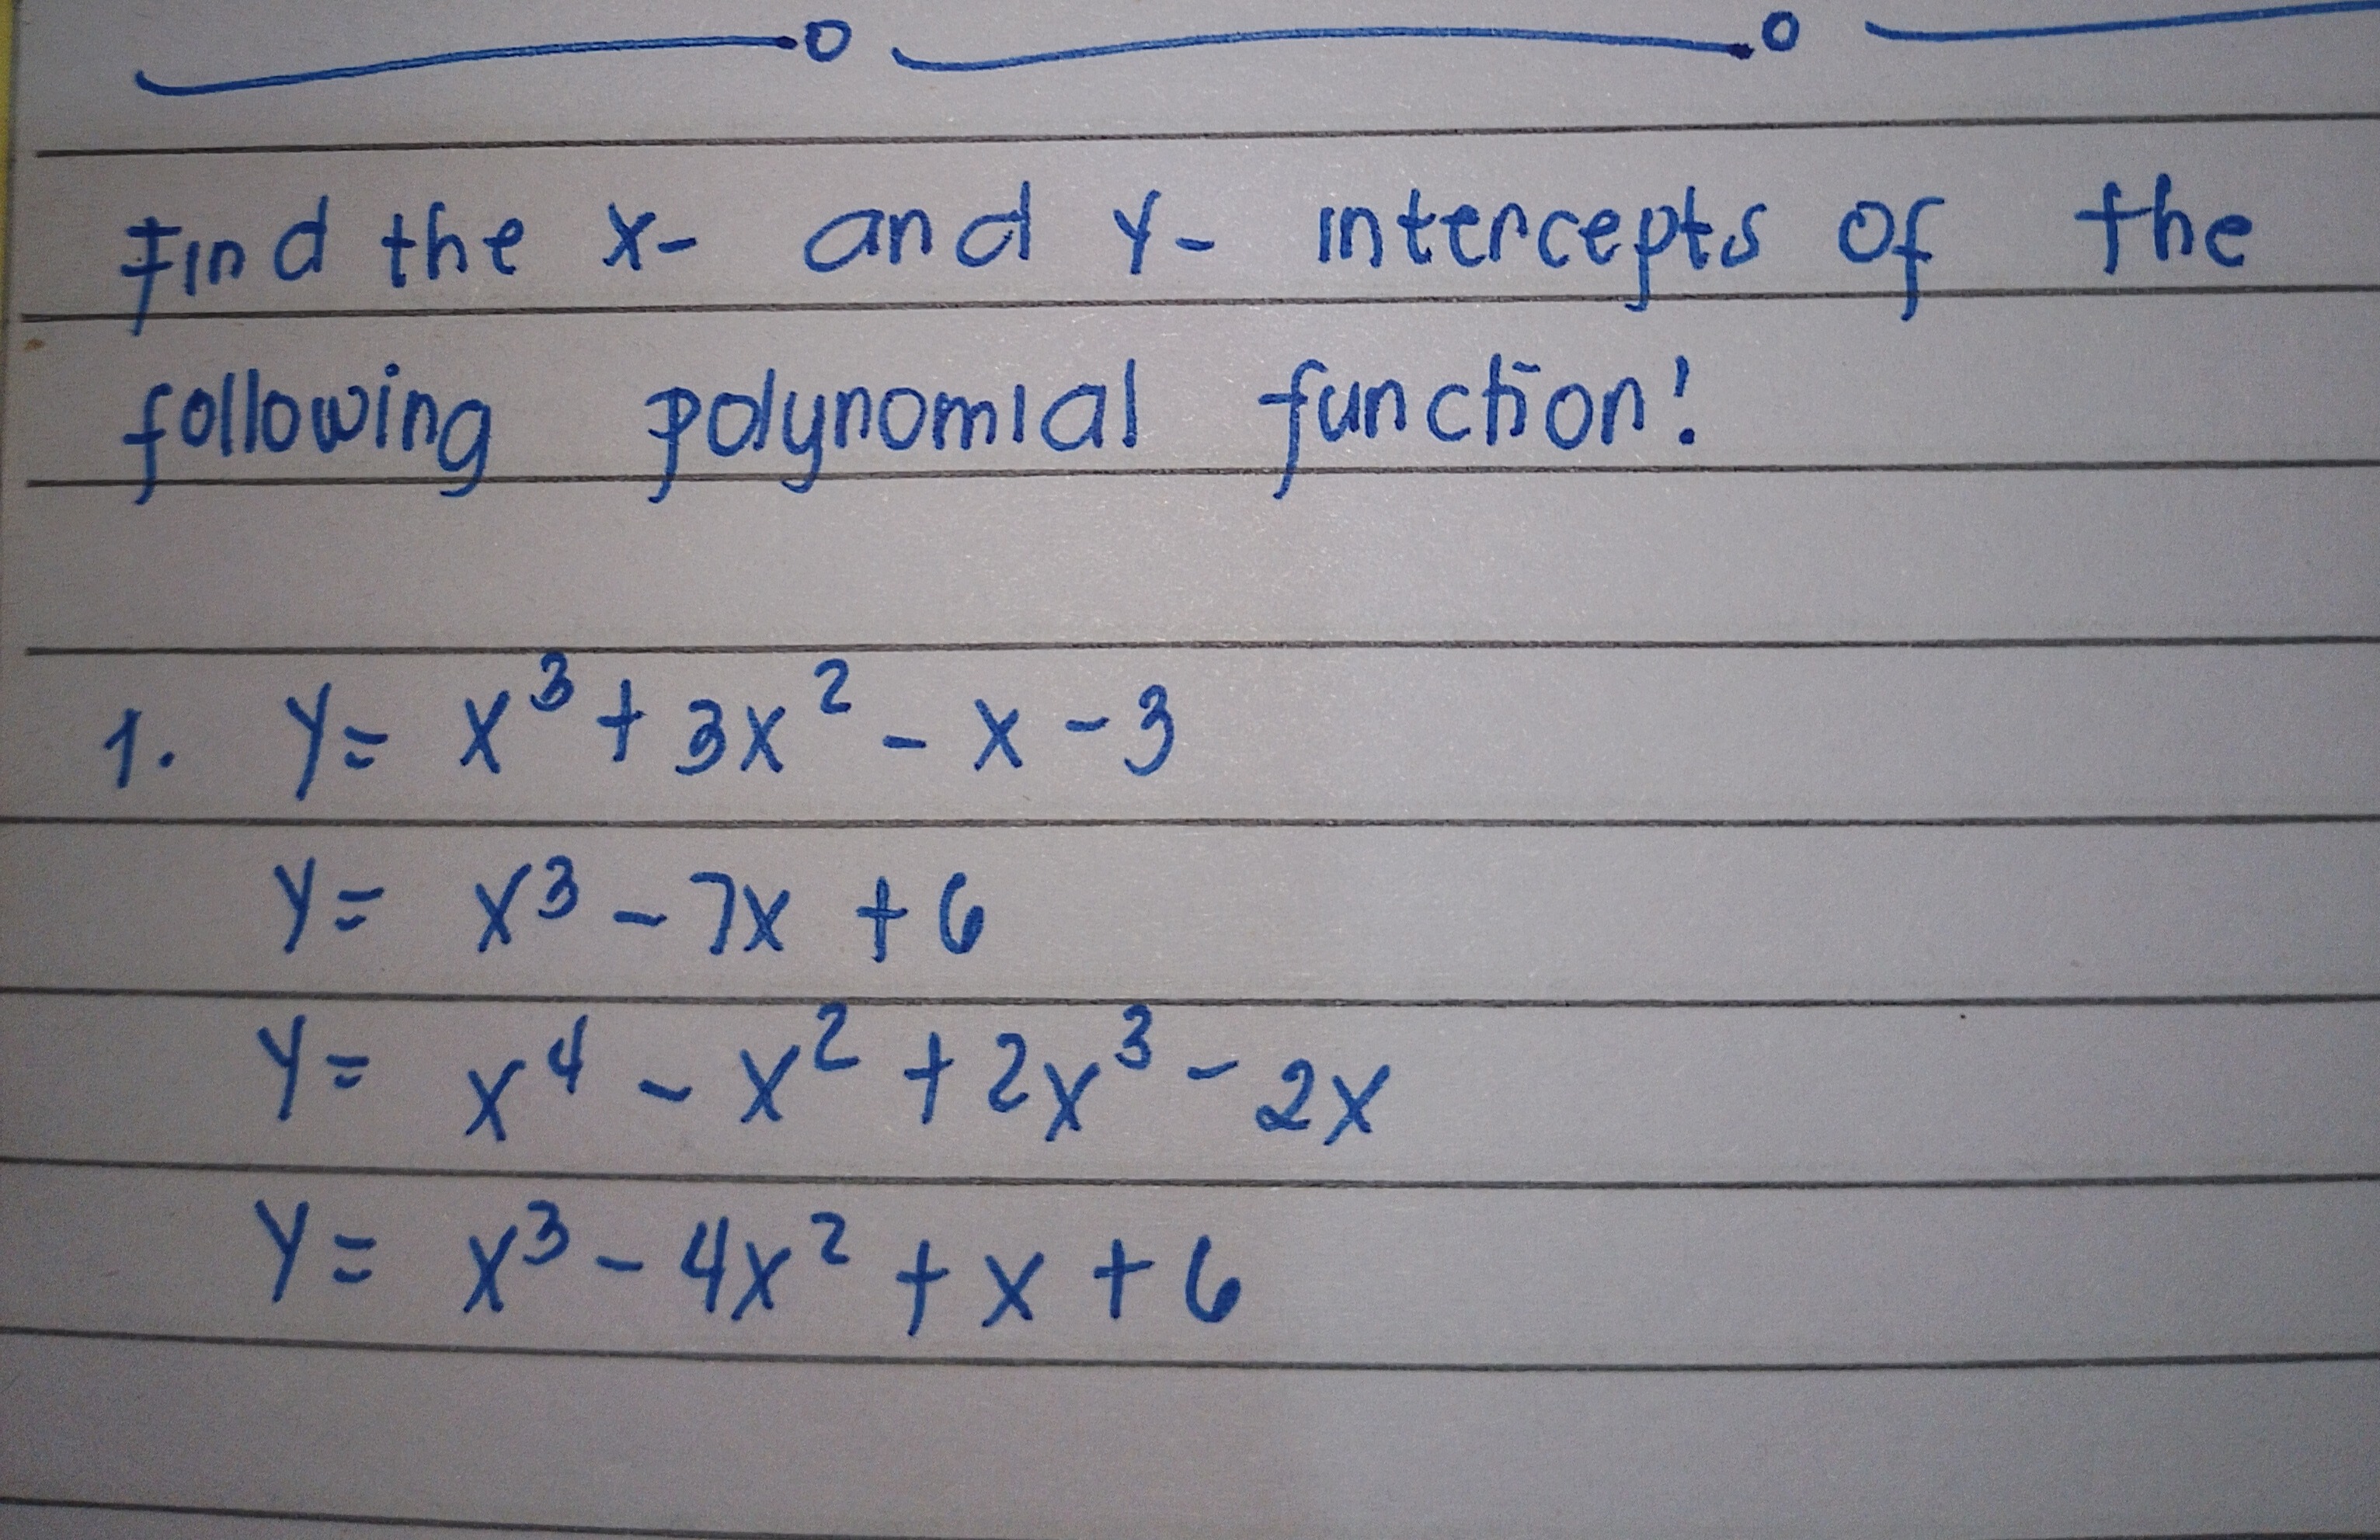 Find the x- and y- intercepts of the
following polynomial function!
1. y= x³ + 3x² - x - 3
y= x³ - 7x + 6
y= x⁴ - x² + 2x³ - 2x
y= x³ - 4x² + x + 6